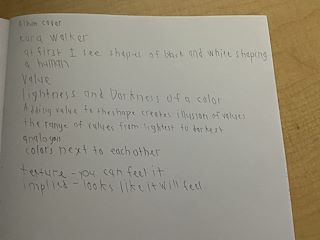 album cover
cara walker
at first I see shapes of black and white shaping
a human
value
lightness and Darkness of a color
Adding value to theshape creates illusion of values
the range of values from lightest to darkest
analogous
colors next to eachother
texture - you can feel it
implied - looks like it will feel